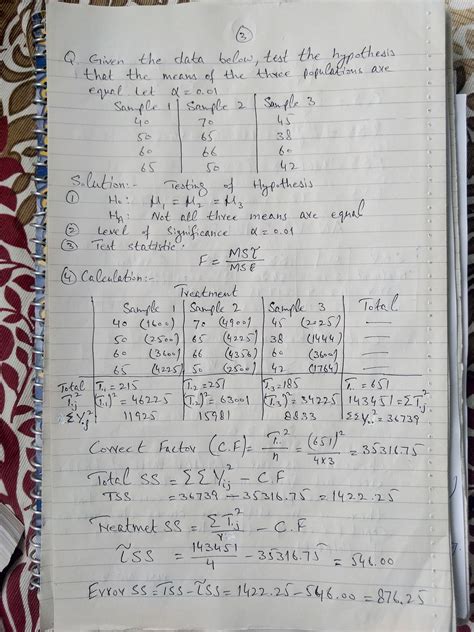 2
Q Given the data below, test the hypothesis
that the means of the three populations are
equal let α = 0.01
Sample 1 Sample 2 Sample 3
40 70 45
50 65 38
60 66 60
65 50 42
Solution:- Testing of Hypothesis
① H₀: μ₁ = μ₂ = μ₃
Hₐ: Not all three means are equal
② Level of Significance α = 0.01
③ Test statistic:
F = MSτ / MSE
④ Calculation:-
Treatment
Sample 1 Sample 2 Sample 3 Total
40 (1600) 70 (4900) 45 (2025) —
50 (2500) 65 (4225) 38 (1444) —
60 (3600) 66 (4356) 60 (3600) —
65 (4225) 50 (2500) 42 (1764) —
Total T.₁ = 215 T.₂ = 251 T.₃ = 185 T.. = 651
T.j² (T.₁)² = 46225 (T.₂)² = 63001 (T.₃)² = 34225 143451 = ΣT.j²
ΣYij² 11925 15981 8833 ΣΣYij² = 36739
Correct Factor (C.F) = T..² / n = (651)² / 4×3 = 35316.75
Total SS = ΣΣYij² - C.F
TSS = 36739 - 35316.75 = 1422.25
Treatmet SS = ΣT.j² / r - C.F
τSS = 143451 / 4 - 35316.75 = 546.00
Error SS = TSS - τSS = 1422.25 - 546.00 = 876.25